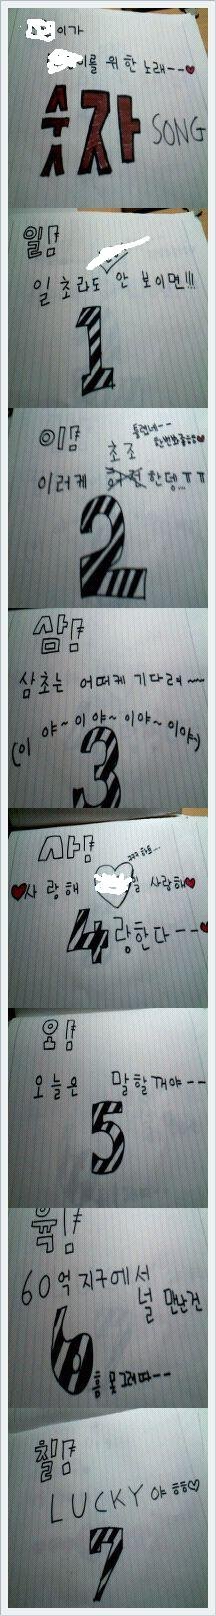 이가
이를 위한 노래--♥
숫자 SONG
일!
일 초라도 안 보이면!!!
1
이!
틀렸네--
초조
이러케 한뎅!!ㅠㅠ
2
삼!
삼초는 어떠케 기다려~~
(이야~이야~이야~이야~)
3
사!
♥사랑해 널 사랑해♥
4랑한다--♥
오!
오늘은 말할꺼야--
5
육!
60억 지구에서
널 만난건
6
칠!
LUCKY야 ㅎㅎ♡
7